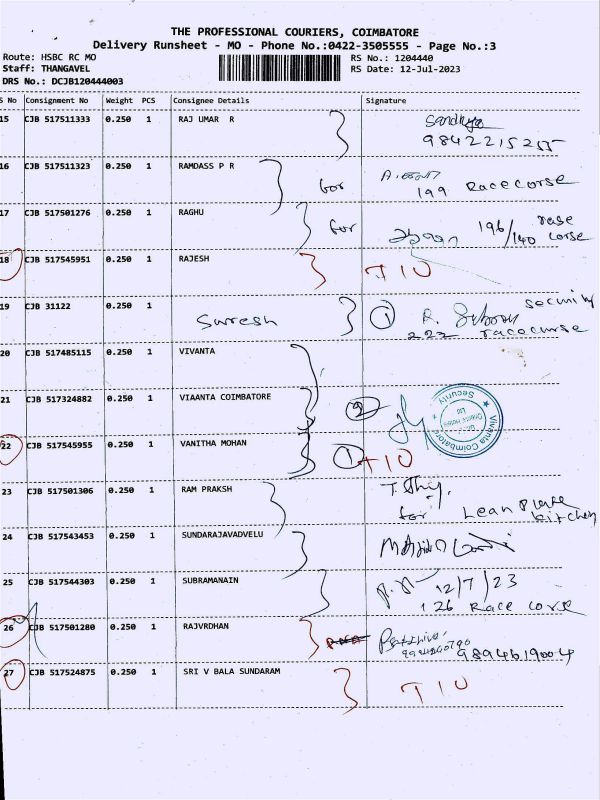 THE PROFESSIONAL COURIERS, COIMBATORE
Delivery Runsheet - MO - Phone No.:0422-3505555 - Page No.:3
Route: HSBC RC MO
Staff: THANGAVEL
DRS No.: DCJB120444003
RS No.: 1204440
RS Date: 12-Jul-2023
S No Consignment No Weight PCS Consignee Details Signature
15 CJB 517511333 0.250 1 RAJ UMAR R Sandhya
9842215255
16 CJB 517511323 0.250 1 RAMDASS P R for
199 Racecorse
17 CJB 517501276 0.250 1 RAGHU for 196/140 rase corse
18 CJB 517545951 0.250 1 RAJESH TIU
19 CJB 31122 0.250 1 Suresh 1 R. security
222 racecurse
20 CJB 517485115 0.250 1 VIVANTA
21 CJB 517324882 0.250 1 VIAANTA COIMBATORE 2
Vivanta Coimbatore
Security
22 CJB 517545955 0.250 1 VANITHA MOHAN 1 TIU
23 CJB 517501306 0.250 1 RAM PRAKSH
for Lean Plate kitchen
24 CJB 517543453 0.250 1 SUNDARAJAVADVELU
25 CJB 517544303 0.250 1 SUBRAMANAIN 12/7/23
126 Race corse
26 CJB 517501280 0.250 1 RAJVRDHAN
9894619004
27 CJB 517524875 0.250 1 SRI V BALA SUNDARAM TIU